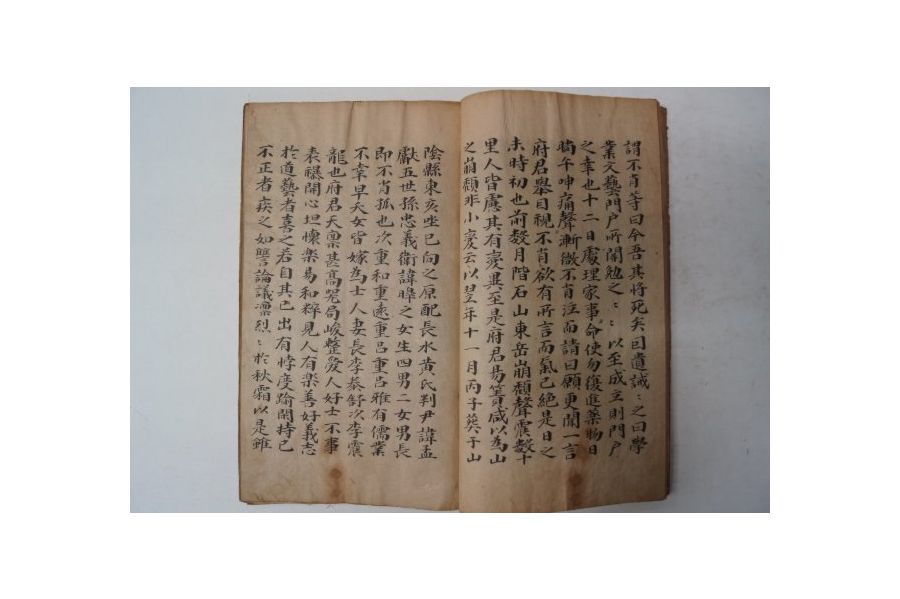 謂不肖等曰今吾其將死矣因遺誡〻之曰學
業文藝門戶所關勉之〻〻以至成立則門戶
之幸也十二日處理家事命使勿復進藥物日
晌午呻痛聲漸微不肖泣而請曰願更聞一言
府君擧目視不肖欲有所言而氣已絶是日之
未時初也前數月階石山東岳崩頹聲震數十
里人皆虞其有變異至是府君易簀咸以爲山
之崩頹非小變云以翌年十一月丙子葬于山
陰縣東亥坐巳向之原配長水黃氏判尹諱孟
獻五世孫忠義衛諱曄之女生四男二女男長
即不肖孤也次重和重遠重呂重呂雅有儒業
不幸早夭女皆嫁爲士人妻長李泰舒次李震
龍也府君天稟甚高器局峻整愛人好士不事
表襮開心坦懷樂易和粹見人有樂善好義志
於道藝者喜之若自其己出有悖度踰閑持己
不正者疾之如讐論議凛烈〻於秋霜以是雖